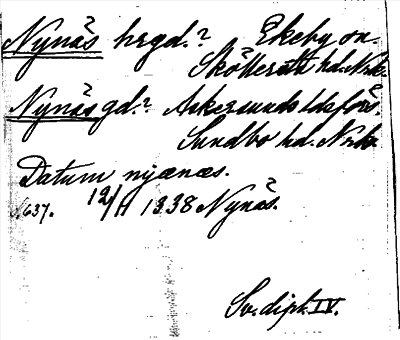 Nynäs hrgd.? Ekeby sn.
Sköllersta hd. Nrke.
Nynäs gd.? Askersunds ldsförs.
Sundbo hd. Nrke.
Datum nyænæs.
N. 637. 12/11 1338 Nynäs.
Sv. dipl. IV.